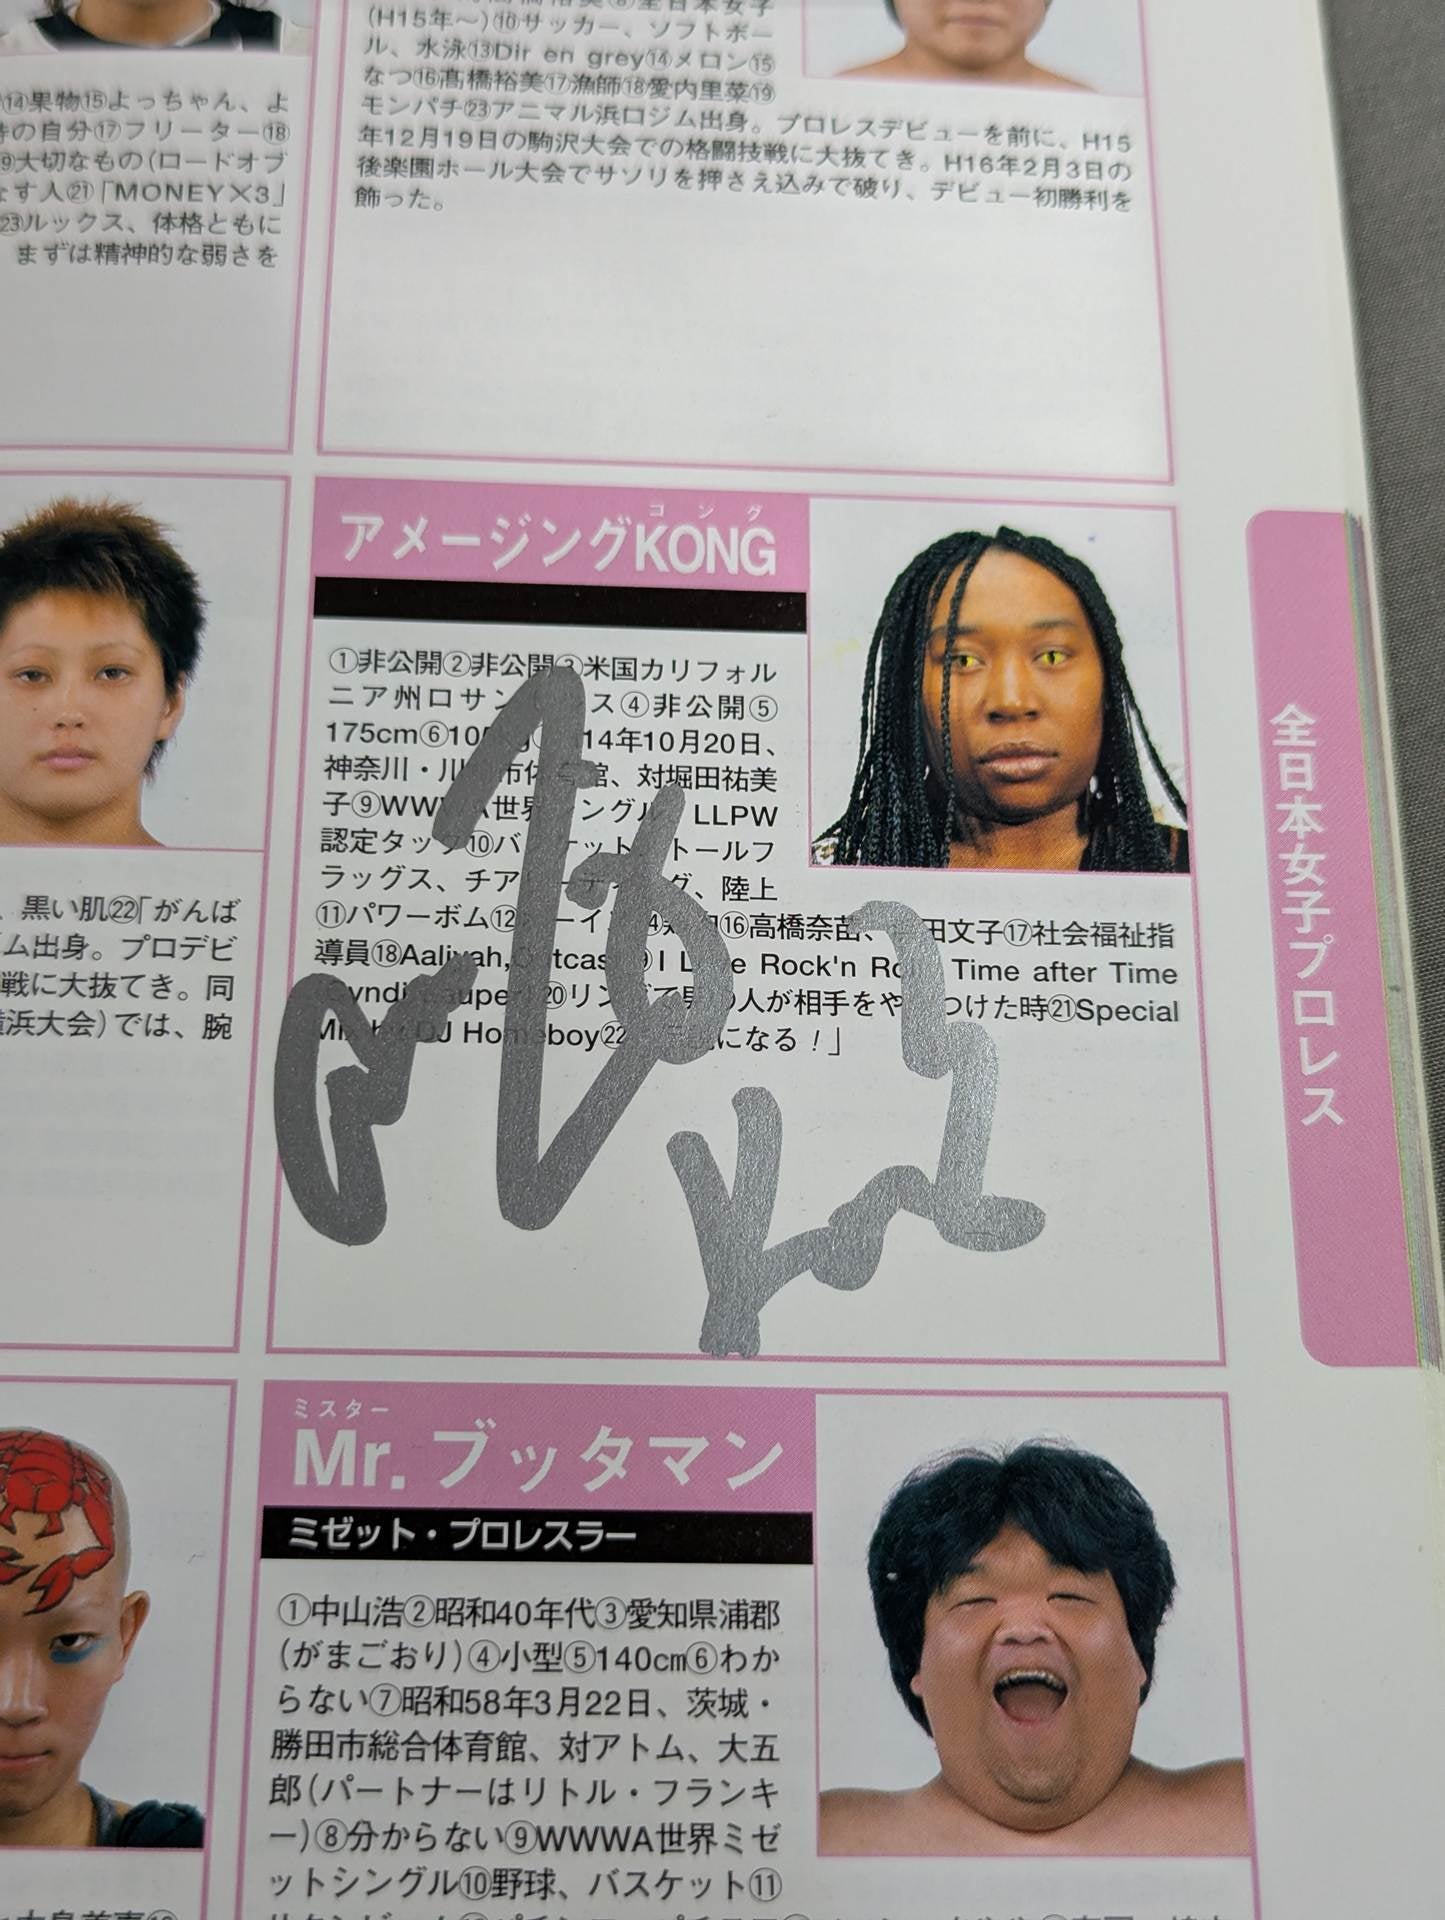 (H15年～)⑩サッカー、ソフトボー
ル、水泳⑬Dir en grey⑭メロン⑮
なつ⑯髙橋裕美⑰漁師⑱愛内里菜⑲
モンパチ㉓アニマル浜口ジム出身。プロレスデビューを前に、H15
年12月19日の駒沢大会での格闘技戦に大抜てき。H16年2月3日の
後楽園ホール大会でサソリを押さえ込みで破り、デビュー初勝利を
飾った。
⑭果物⑮よっちゃん、よ
の自分⑰フリーター⑱
⑲大切なもの(ロードオブ
す人㉑「MONEY×3」
㉓ルックス、体格ともに
まずは精神的な弱さを
コング
アメージングKONG
①非公開②非公開③米国カリフォル
ニア州ロサン ス④非公開⑤
175cm⑥ 14年10月20日、
神奈川・川 市体 館、対堀田祐美
子⑨WWWA世界 ングル、LLPW
認定タッグ⑩バ ケット トールフ
ラッグス、チア グ、陸上
⑪パワーボム⑫ ⑯高橋奈苗、 田文子⑰社会福祉指
導員⑱Aaliyah, ⑲I Love Rock'n Roll Time after Time
⑳リング 人が相手をや つけた時㉑Special
Mix by DJ Homeboy㉒ になる！」
、黒い肌㉒「がんば
ム出身。プロデビ
戦に大抜てき。同
浜大会)では、腕
全日本女子プロレス
ミスター
Mr.ブッタマン
ミゼット・プロレスラー
①中山浩②昭和40年代③愛知県浦郡
(がまごおり)④小型⑤140cm⑥わか
らない⑦昭和58年3月22日、茨城・
勝田市総合体育館、対アトム、大五
郎(パートナーはリトル・フランキ
ー)⑧分からない⑨WWWA世界ミゼ
ットシングル⑩野球、バスケット⑪